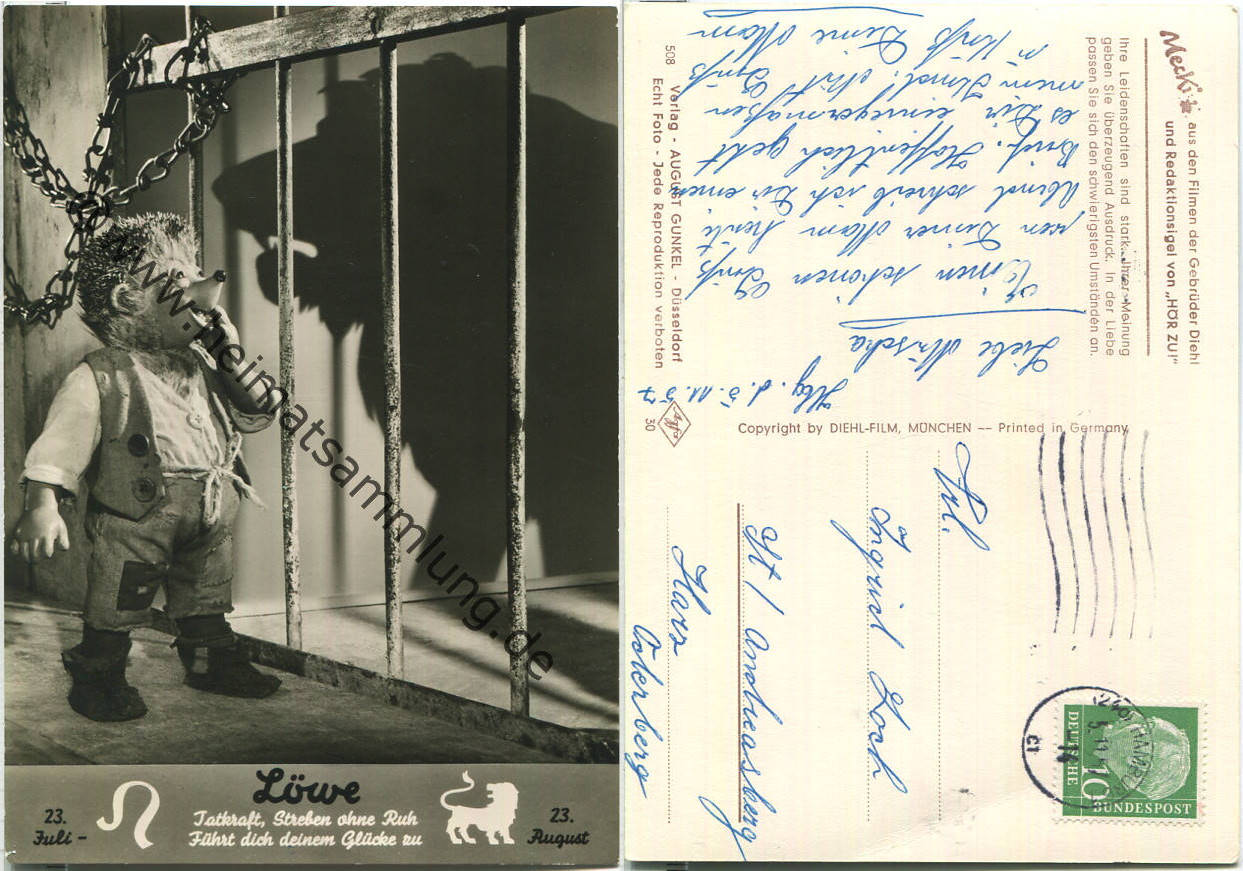 www.heimatsammlung.de
Löwe
23.
Juli -
Tatkraft, Streben ohne Ruh
Führt dich deinem Glücke zu
23.
August
Mecki
aus den Filmen der Gebrüder Diehl
und Redaktionsigel von „HÖR ZU!"
Ihre Leidenschaften sind stark. Ihrer Meinung
geben Sie überzeugend Ausdruck. In der Liebe
passen Sie sich den schwierigsten Umständen an.
Hbg. d. 5. 11. 57
Liebe Mischa
Einen schönen Gruß
von Deiner Mam heute
Abend schreib ich Dir einen
Brief. Hoffentlich geht
es Dir einigermaßen
mein Kind. Mit Gruß
u Kuß Deine Mam
508 Verlag - AUGUST GUNKEL - Düsseldorf
Echt Foto - Jede Reproduktion verboten
Agfa
30
Copyright by DIEHL-FILM, MÜNCHEN -- Printed in Germany
Frl.
Ingrid Koch
St / Andreasberg
Harz
Oderberg
DEUTSCHE
BUNDESPOST
10